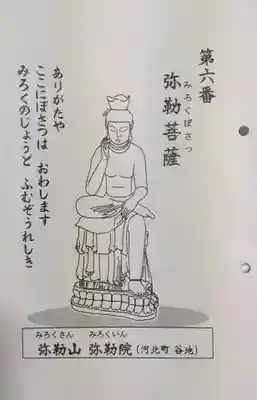 第六番
みろくぼさつ
弥勒菩薩
ありがたや
ここにぼさつは おわします
みろくのじょうど ふむぞうれしき
みろくさん みろくいん
弥勒山 弥勒院(河北町 谷地)